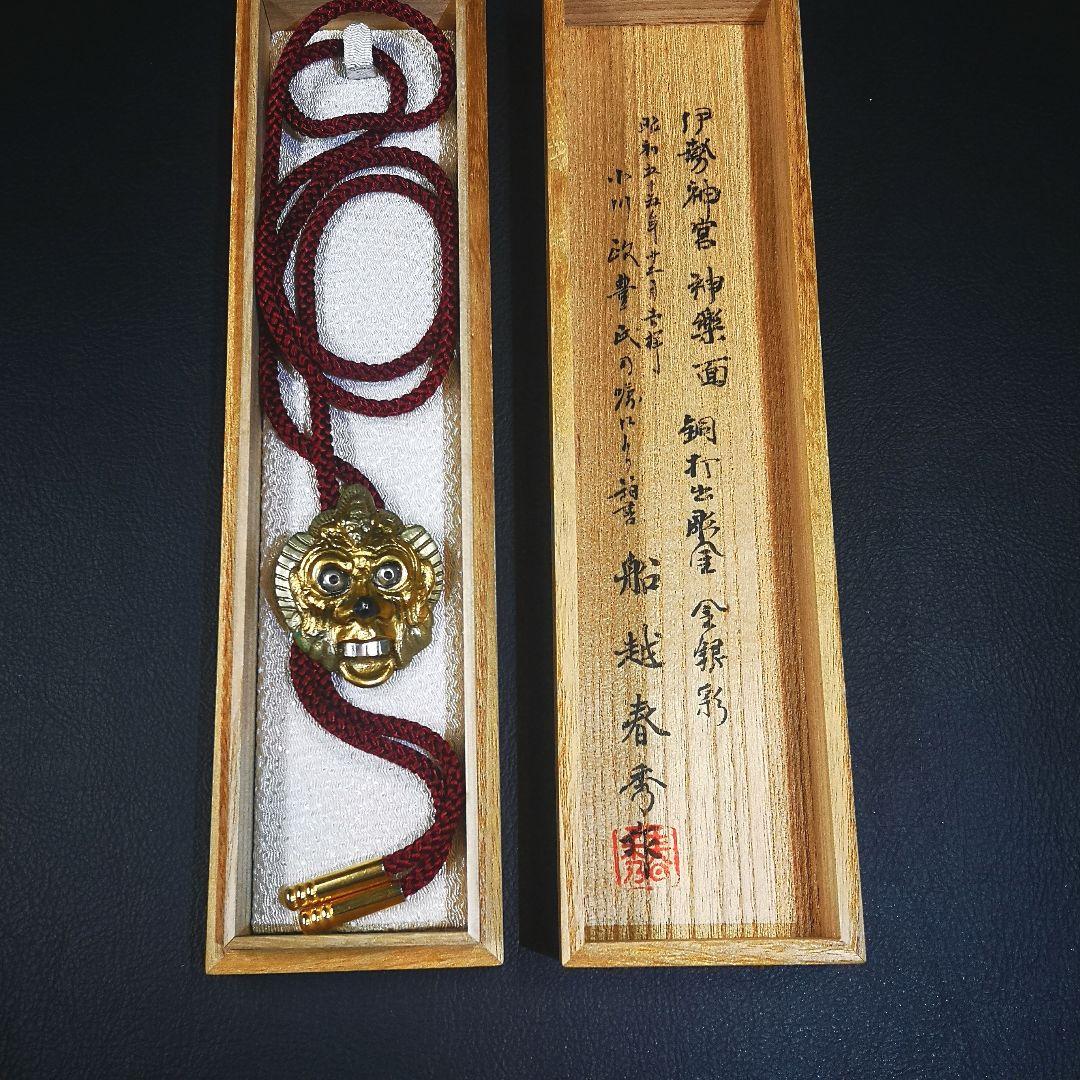 伊勢神宮 神樂面 銅打出彫金 金銀彩
昭和五十五年十二月吉祥
小川政豊氏の
船越春秀